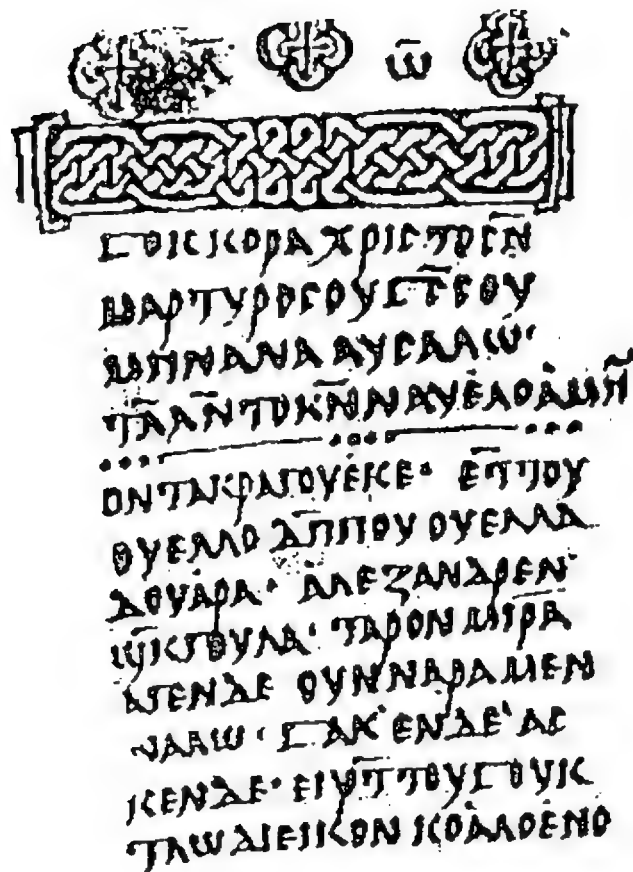 ⲱ̄
ⳟⲟⲕⲕⲟⲣⲁ ⲭⲣⲓⲥⲧⲟⲥⲛ̄
ⲙⲁⲣⲧⲩⲣⲟⲥⲟⲩ ⲥ̄ⲧ̄ⲥⲟⲩ
ⲙⲏⲛⲁⲛⲁ ⲁⲩⲥⲁⲗⲱ·
ⲧⲁ̄ⲁⲛ̄ ⲧⲟⲕⲛ̄ⲛⲁⲩⲉⲗⲟ ⲁ̀ⲙⲏⲛ̄
ⲟⲛⲧⲁⲕⲣⲁⲅⲟⲩⲉⲕⲉ· ⲉⲧ̄ⲧⲟⲩ
ⲟⲩⲉⲗⲗⲟ ⲁ̄ⲡⲡⲟⲩ ⲟⲩⲉⲗⲗⲁ
ⲇⲟⲩⲁ̀ⲣⲁ· ⲁⲗⲉⲝⲁⲛⲇⲣⲉⲛ
ϣ̄ⲓⲕⲅⲟⲩⲗⲁ· ⲧⲁⲣⲟⲛ ⲙⲓ̄ⲣⲁ̄
ⲁⲅⲉⲛⲇⲉ ⲟⲩⲛⲛⲁⲣⲁ ⲙⲉⲛ
ⲛⲁⲗⲱ· ⳟⲁⲕ ⲉⲛⲇⲉ ⲁⲥ
ⲕⲉⲛⲇⲉ· ⲉⲓⳡ̄ⲧⲧⲟⲩⳟⲟⲩⲕ
ⲧⲗⲱ ⲇⲓⲉⲓⲕⲟⲛ ⲕⲟⲁ̀ⲗⲟ ⲉⲛⲟ